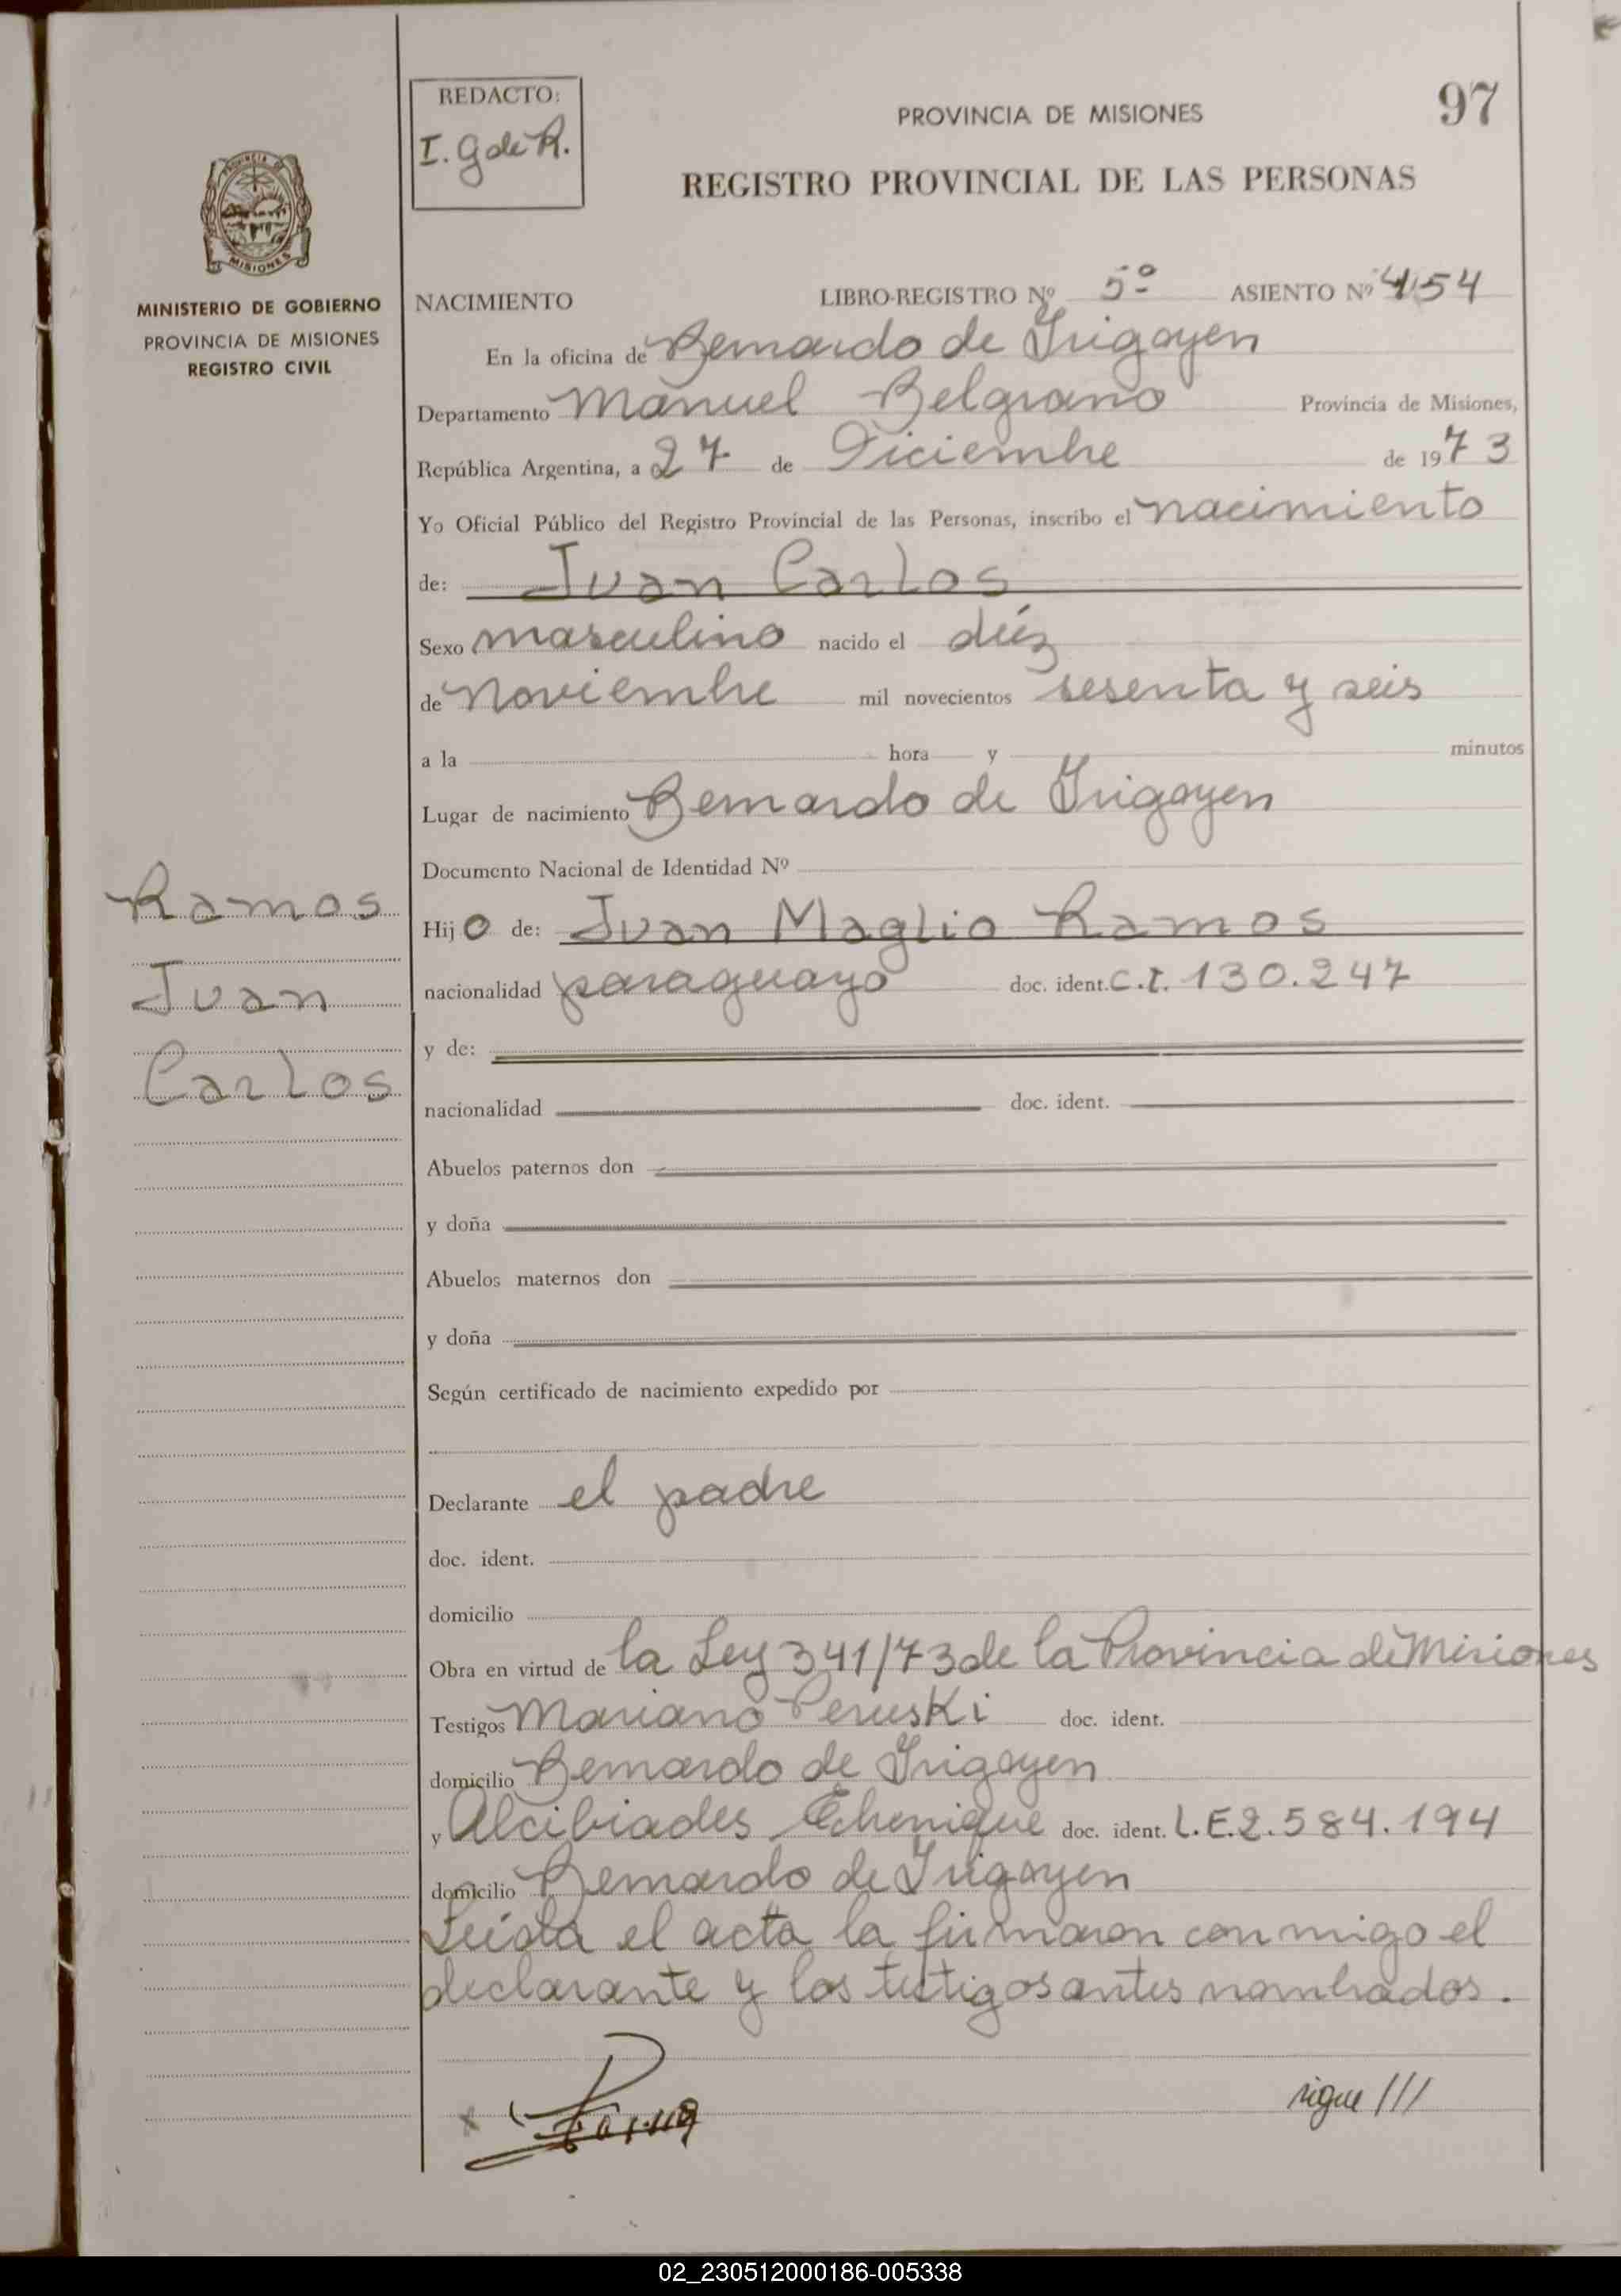 REDACTO:
I. G de R.
PROVINCIA DE MISIONES
97
REGISTRO PROVINCIAL DE LAS PERSONAS
PROVINCIA DE
MISIONES
MINISTERIO DE GOBIERNO
PROVINCIA DE MISIONES
REGISTRO CIVIL
NACIMIENTO LIBRO-REGISTRO Nº 5º ASIENTO Nº 454
En la oficina de Bernardo de Irigoyen
Departamento Manuel Belgrano Provincia de Misiones,
República Argentina, a 27 de Diciembre de 1973
Yo Oficial Público del Registro Provincial de las Personas, inscribo el nacimiento
de: Juan Carlos
Sexo masculino nacido el diéz
de noviembre mil novecientos sesenta y seis
a la hora y minutos
Lugar de nacimiento Bernardo de Irigoyen
Documento Nacional de Identidad Nº
Ramos
Juan
Carlos
Hijo de: Juan Maglio Ramos
nacionalidad paraguayo doc. ident. C.I. 130.247
y de:
nacionalidad doc. ident.
Abuelos paternos don
y doña
Abuelos maternos don
y doña
Según certificado de nacimiento expedido por
Declarante el padre
doc. ident.
domicilio
Obra en virtud de la Ley 341/73 de la Provincia de Misiones
Testigos Mariano Peruski doc. ident.
domicilio Bernardo de Irigoyen
y Alcibiades Echenique doc. ident. L.E.2.584.194
domicilio Bernardo de Irigoyen
Leída el acta la firmaron conmigo el
declarante y los testigos antes nombrados.
sigue ///
02_230512000186-005338